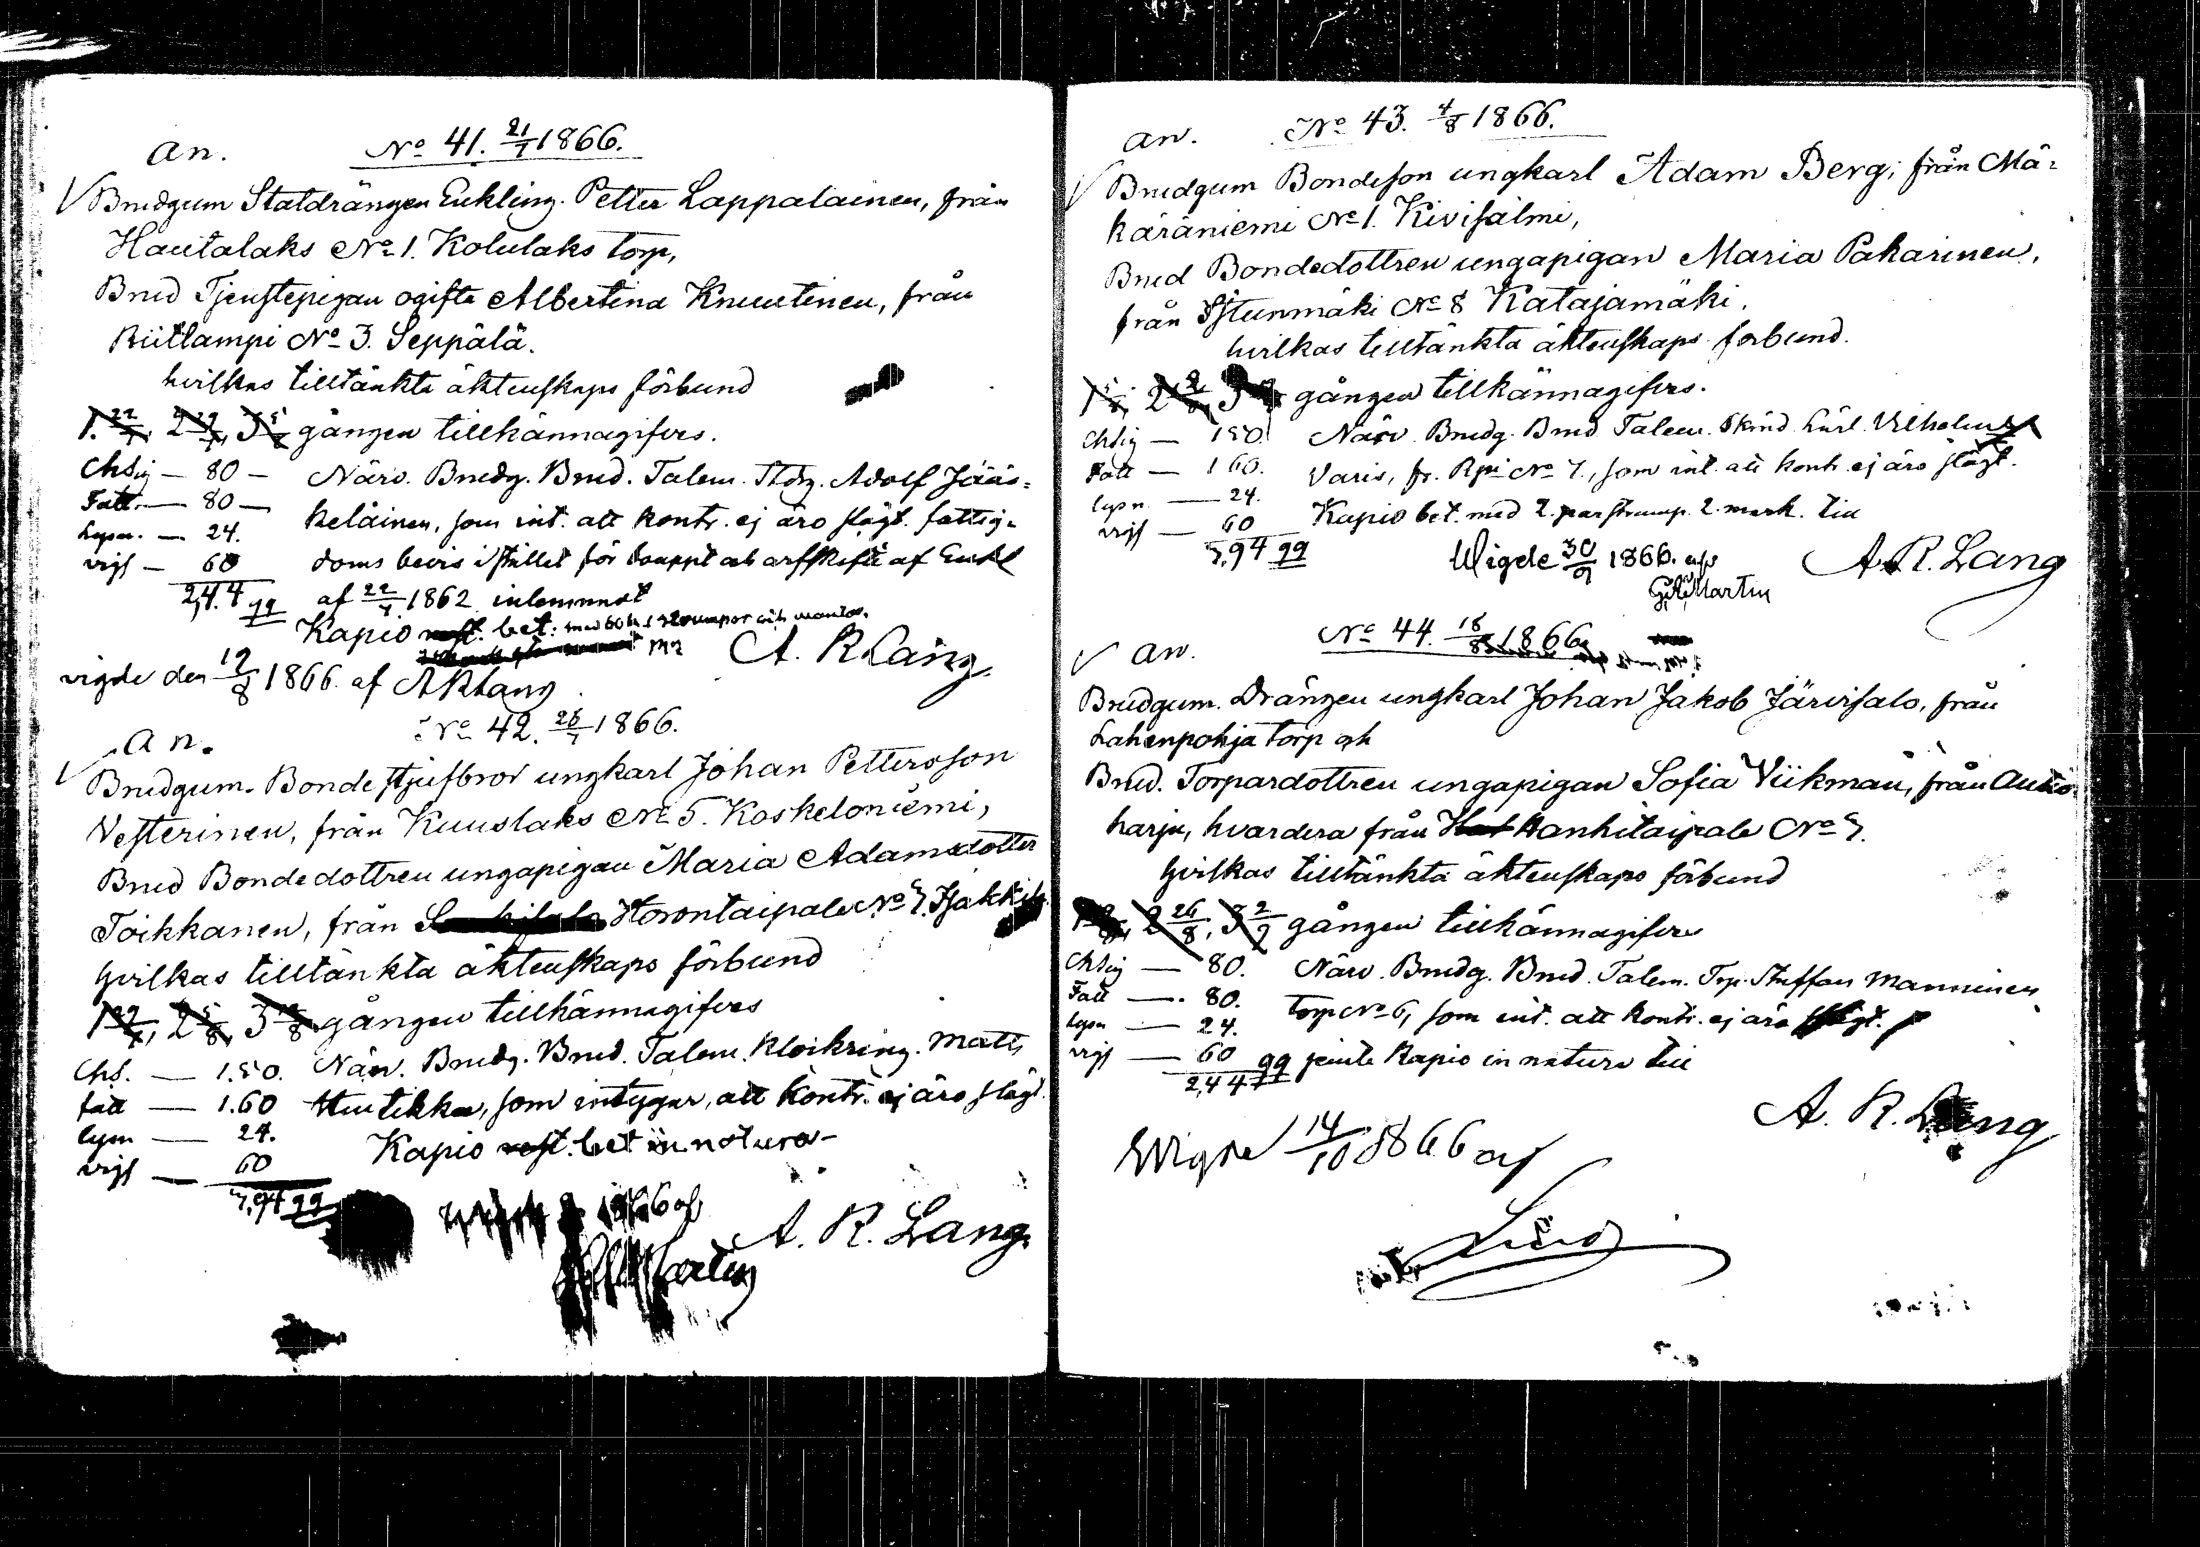 an. No 41. 21/7 1866.
Brudgum Statdrängen Enkling. Petter Lappalainen, från
Hautalaks No 1. Kolulaks torp,
Brud Tjenstepigan ogifta Albertina Knuutinen, från
Riitlampi No 3. Seppälä.
hvilkas tilltänkta äktenskaps förbund
1. 22/7, 2 29/7, 3 5/8 gången tillkännagifves.
Chsig — 80 — Närv. Brudg. Brud. Talem. Stdrg. Adolf Jääs=
Fatt. — 80 — keläinen, som int. att kontr. ej äro slägt. fattig=
lysn. — 24. doms bevis i stället för bouppt och arfskifte af Enkl
vigs — 60 af 22/7 1862 inlemnadt
2,44 99
Kapio rest. bet: med 60
A. R. Lang.
vigde den 12/8 1866. af A R Lang
an. No 42. 28/7 1866.
Brudgum. Bonde stjufbror ungkarl Johan Pettersson
Vesterinen, från Kuuslaks No 5. Koskeloniemi,
Brud Bondedottren ungapigan Maria Adamsdotter
Toikkanen, från Horontaipale No 7.
hvilkas tilltänkta äktenskaps förbund
1 29/7, 2 5/8, 3 12/8 gången tillkännagifves
Chs. — 1.50. Närv. Brudg. Brud. Talem. Matts
fatt — 1.60 Hintikka, som intygar, att kontr. ej äro slägt.
lysn — 24. Kapio rest. bet in natura —
vigs — 60
3,94 99
1866 af
Martin
A. R. Lang.
an. No 43. 4/8 1866.
Brudgum Bondeson ungkarl Adam Berg, från Mä=
käräniemi No 1. Kivisalmi,
Brud Bondedottren ungapigan Maria Pakarinen,
från Istunmäki No 8 Katajamäki.
hvilkas tilltänkta äktenskaps förbund.
1 5/8, 2 gången tillkännagifves.
Chsig — 150. Närv. Brudg. Brud. Talem. Vilhelm
Fatt — 160. Varis, fr. Rpi No 7., som int. att kontr. ej äro slägt.
lysn. — 24. Kapio bet. med 2. par strump. 2. mark. till
vigs — 60
3,94 99
Wigde 30/9 1866. af
Martin
A. R. Lang
an. No 44. 18/8 1866
Brudgum. Drängen ungkarl Johan Jakob Järvisalo, från
Lahenpohja torp och
Brud. Torpardottren ungapigan Sofia Viikman, från Autio=
harju, hvardera från Hankitaipale No 7.
hvilkas tilltänkta äktenskaps förbund
2 26/8, 3 2/9 gången tillkännagifves
Chsig — 80. Närv. Brudg. Brud. Talem. Trp. Staffan Manninen
Fatt — 80. torp No 6, som int. att kontr. ej äro slägt.
lysn — 24.
vigs — 60 jemte Kapio in natura till
2,44 99
A. R. Lang
Wigde 14/10 1866 af